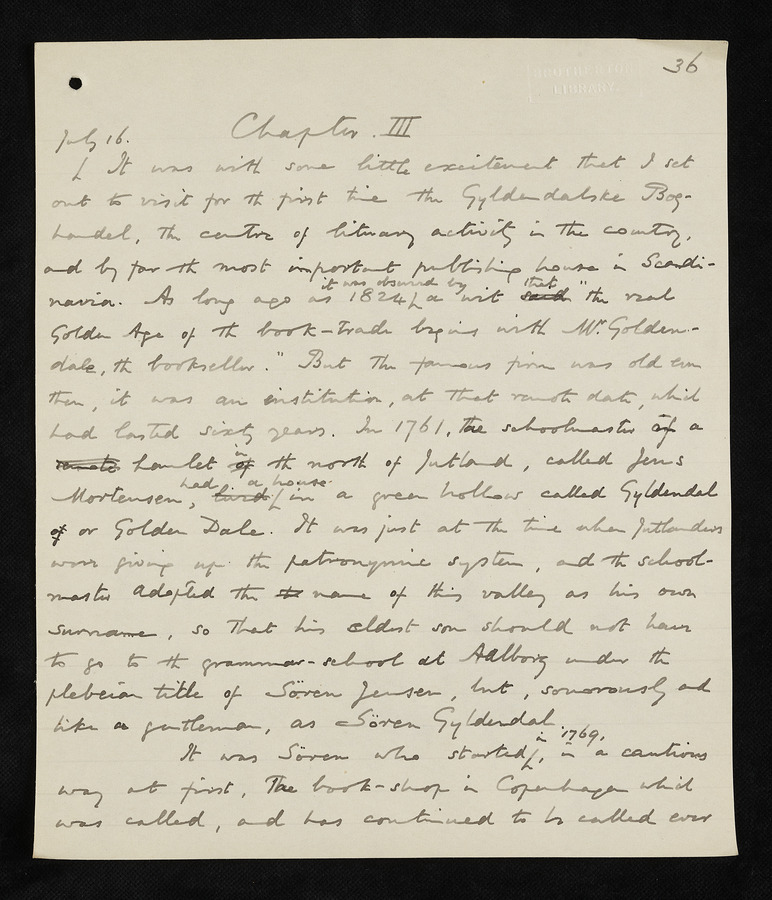 36
BROTHERTON
LIBRARY
July 16.
Chapter III
[ It was with some little excitement that I set
out to visit for the first time the Gyldendalske Bog-
handel, the centre of literary activity in the country,
and by far the most important publishing house in Scandi-
it was observed by that
navia. As long ago as 1824 [ a wit said "the real
Golden Age of the book-trade begins with Mr. Golden-
dale, the bookseller." But the famous firm was old even
then, it was an institution, at that remote date, which
had lasted sixty years. In 1761, the schoolmaster of a
in
remote hamlet of the north of Jutland, called Jens
had a house
Mortensen, lived [ in a green hollow called Gyldendal
of or Golden Dale. It was just at the time when Jutlanders
were giving up the patronymic system, and the school-
master adopted the name of this valley as his own
surname, so that his eldest son should not have
to go to the grammar-school at Aalborg under the
plebeian title of Sören Jensen, but, sonorously and
like a gentleman, as Sören Gyldendal.
in 1769,
It was Sören who started [, in a cautious
way at first, the book-shop in Copenhagen which
was called, and has continued to be called ever